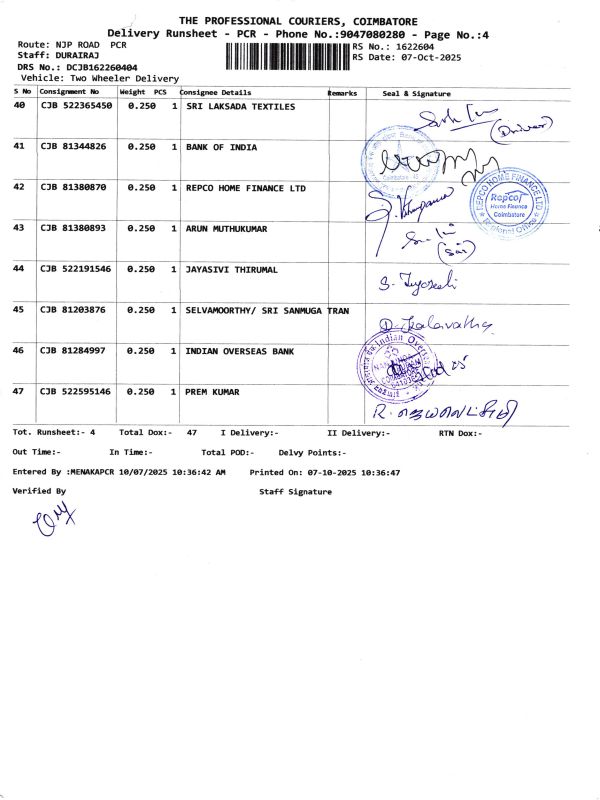 THE PROFESSIONAL COURIERS, COIMBATORE
Delivery Runsheet - PCR - Phone No.:9047080280 - Page No.:4
Route: NJP ROAD PCR RS No.: 1622604
Staff: DURAIRAJ RS Date: 07-Oct-2025
DRS No.: DCJB162260404
Vehicle: Two Wheeler Delivery
S No Consignment No Weight PCS Consignee Details Remarks Seal & Signature
40 CJB 522365450 0.250 1 SRI LAKSADA TEXTILES
(Driver)
41 CJB 81344826 0.250 1 BANK OF INDIA
42 CJB 81380870 0.250 1 REPCO HOME FINANCE LTD
REPCO HOME FINANCE LTD
Repco
Home Finance
Coimbatore
Regional Office
43 CJB 81380893 0.250 1 ARUN MUTHUKUMAR
44 CJB 522191546 0.250 1 JAYASIVI THIRUMAL
45 CJB 81203876 0.250 1 SELVAMOORTHY/ SRI SANMUGA TRAN
46 CJB 81284997 0.250 1 INDIAN OVERSEAS BANK
47 CJB 522595146 0.250 1 PREM KUMAR
Tot. Runsheet:- 4 Total Dox:- 47 I Delivery:- II Delivery:- RTN Dox:-
Out Time:- In Time:- Total POD:- Delvy Points:-
Entered By :MENAKAPCR 10/07/2025 10:36:42 AM Printed On: 07-10-2025 10:36:47
Verified By Staff Signature